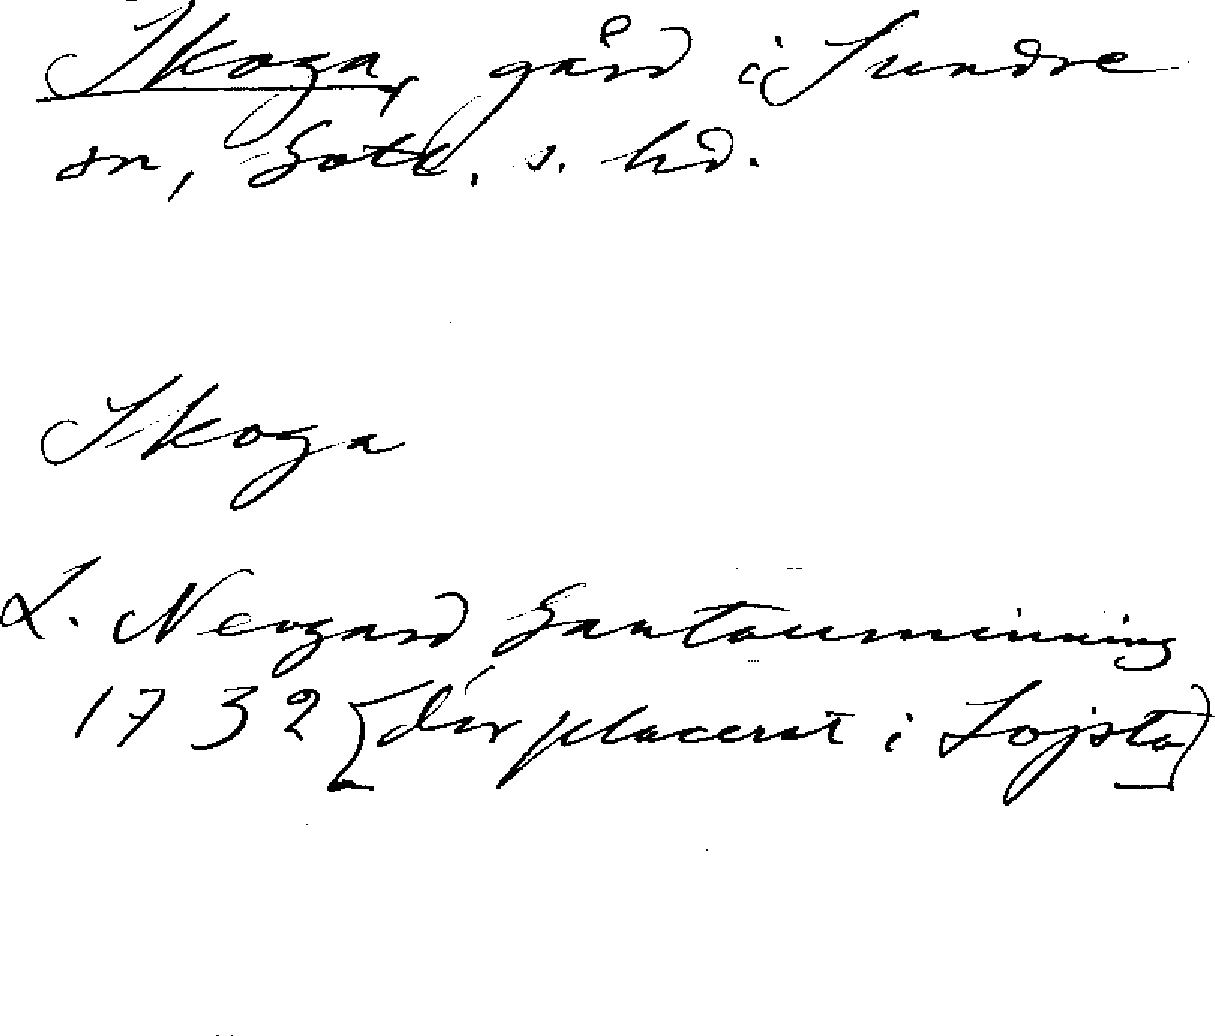 Skoga, gård i Sundre
sn, Gotl. s. hd.
Skoga
L. Neogard Gautauminning
1732 [där placerat i Lojsta]